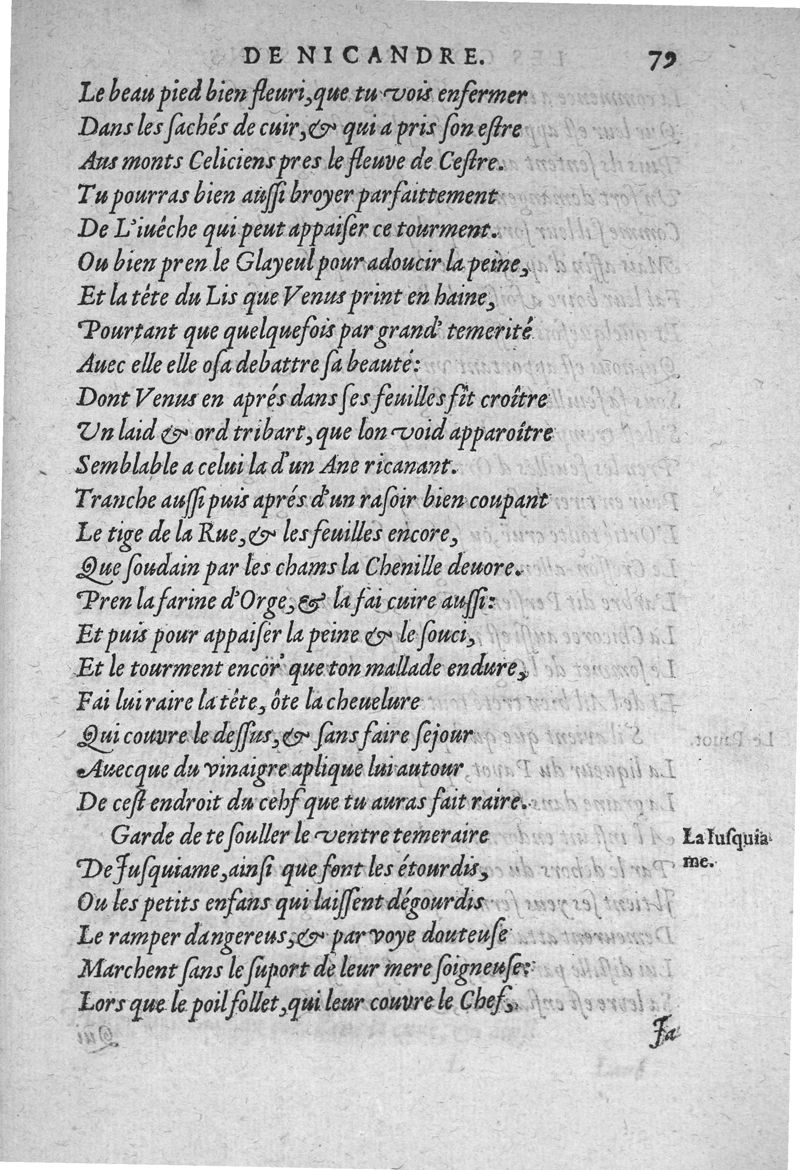 DE NICANDRE. 79
Le beau pied bien fleuri, que tu vois enfermer
Dans les sachés de cuir, & qui a pris son estre
Aus monts Celiciens pres le fleuve de Cestre.
Tu pourras bien aussi broyer parfaittement
De L'iuêche qui peut appaiser ce tourment.
Ou bien pren le Glayeul pour adoucir la peine,
Et la téte du Lis que Venus print en haine,
Pourtant que quelquefois par grand' temerité
Auec elle elle osa debattre sa beauté:
Dont Venus en aprés dans ses feuilles fit croître
Un laid & ord tribart, que lon void apparoître
Semblable a celui la d'un Ane ricanant.
Tranche aussi puis aprés d'un rasoir bien coupant
Le tige de la Rue, & les feuilles encore,
Que soudain par les chams la Chenille deuore.
Pren la farine d'Orge, & la fai cuire aussi:
Et puis pour appaiser la peine & le souci,
Et le tourment encor' que ton mallade endure,
Fai lui raire la téte, ôte la cheuelure
Qui couvre le dessus, & sans faire sejour
Avecque du vinaigre aplique lui autour
De cest endroit du cehf que tu auras fait raire.
Garde de te souller le ventre temeraire
La Iusquia
De Jusquiame, ainsi que font les étourdis,
me.
Ou les petits enfans qui laissent dégourdis
Le ramper dangereus, & par voye douteuse
Marchent sans le suport de leur mere soigneuse:
Lors que le poil follet, qui leur couvre le Chef,
Ja